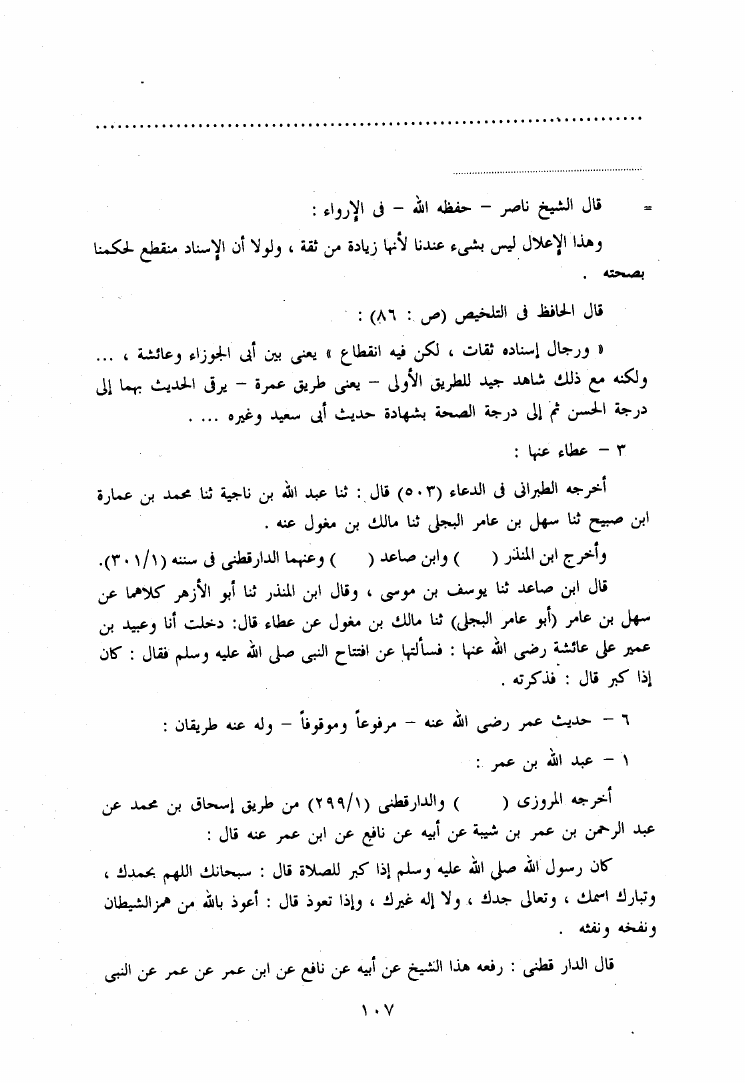 = قال الشيخ ناصر – حفظه الله – فى الإرواء :
وهذا الإعلال ليس بشىء عندنا لأنها زيادة من ثقة ، ولولا أن الإسناد منقطع لحكمنا
بصحته .
قال الحافظ فى التلخيص (ص : ٨٦) :
« ورجال إسناده ثقات ، لكن فيه انقطاع » يعنى بين أبى الجوزاء وعائشة ، ...
ولكنه مع ذلك شاهد جيد للطريق الأولى – يعنى طريق عمرة – يرقى الحديث بهما إلى
درجة الحسن ثم إلى درجة الصحة بشهادة حديث أبى سعيد وغيره ... .
٣ – عطاء عنها :
أخرجه الطبرانى فى الدعاء (٥٠٣) قال : ثنا عبد الله بن ناجية ثنا محمد بن عمارة
ابن صبيح ثنا سهل بن عامر البجلى ثنا مالك بن مغول عنه .
وأخرج ابن المنذر (    ) وابن صاعد (    ) وعنهما الدارقطنى فى سننه (٣٠١/١).
قال ابن صاعد ثنا يوسف بن موسى ، وقال ابن المنذر ثنا أبو الأزهر كلاهما عن
سهل بن عامر (أبو عامر البجلى) ثنا مالك بن مغول عن عطاء قال: دخلت أنا وعبيد بن
عمير على عائشة رضى الله عنها : فسألتها عن افتتاح النبى صلى الله عليه وسلم فقال : كان
إذا كبر قال : فذكرته .
٦ – حديث عمر رضى الله عنه – مرفوعاً وموقوفاً – وله عنه طريقان :
١ – عبد الله بن عمر :
أخرجه المروزى (    ) والدارقطنى (٢٩٩/١) من طريق إسحاق بن محمد عن
عبد الرحمن بن عمر بن شيبة عن أبيه عن نافع عن ابن عمر عنه قال :
كان رسول الله صلى الله عليه وسلم إذا كبر للصلاة قال : سبحانك اللهم بحمدك ،
وتبارك اسمك ، وتعالى جدك ، ولا إله غيرك ، وإذا تعوذ قال : أعوذ بالله من همز الشيطان
ونفخه ونفثه .
قال الدار قطنى : رفعه هذا الشيخ عن أبيه عن نافع عن ابن عمر عن عمر عن النبى
١٠٧